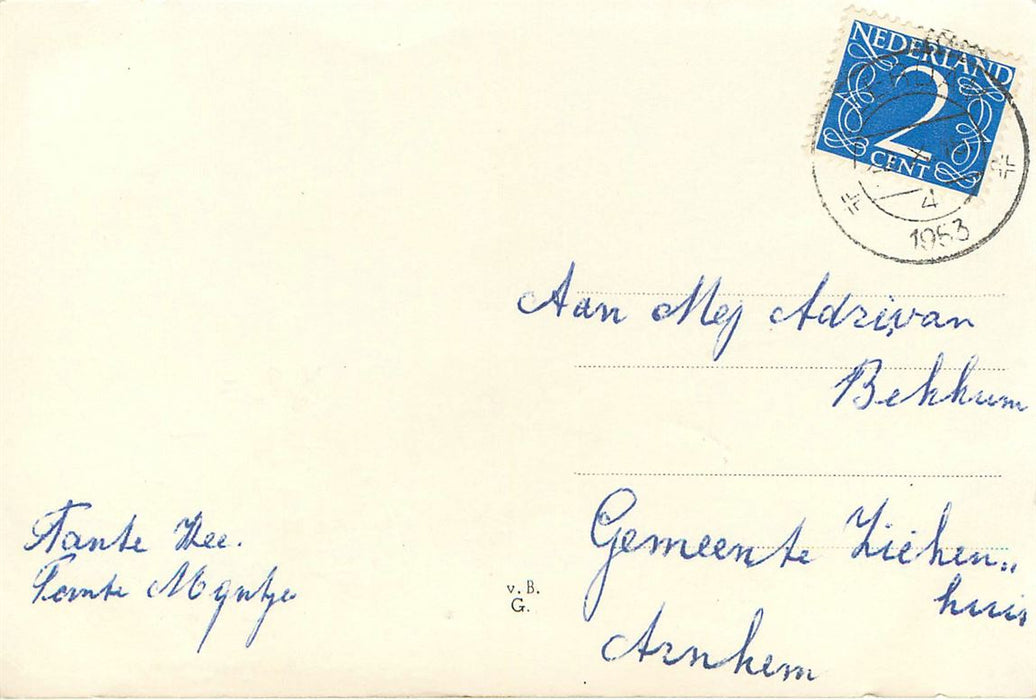 NEDERLAND
2
CENT
4
1953
Aan Mej Adri van
Bekkum
Gemeente Zieken„
huis
Arnhem
Tante
Tante Mijntje
v. B.
G.